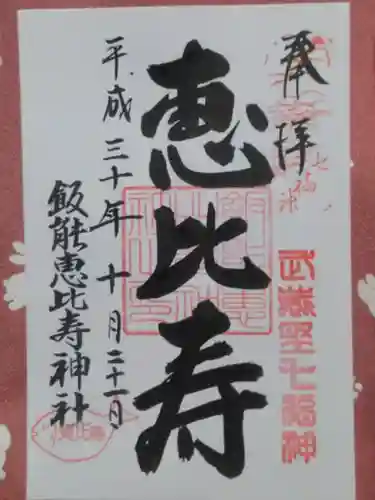 奉拝
武蔵野七福神
恵比寿
平成三十年十月二十一日
飯能恵比寿神社